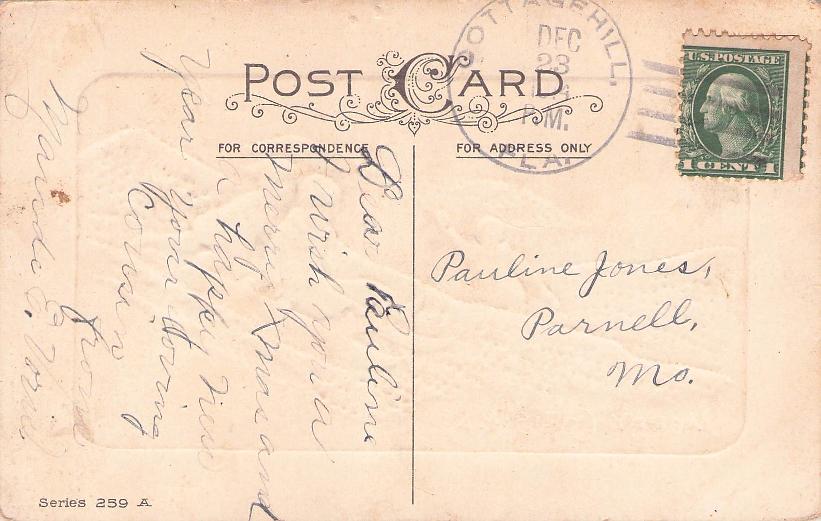 POST CARD
FOR CORRESPONDENCE
FOR ADDRESS ONLY
COTTAGEHILL.
DEC
23
P.M.
FLA.
U.S. POSTAGE
1 CENT 1
Pauline Jones,
Parnell,
Mo.
Dear Pauline
I wish you a
merry Xmas and
a happy New
Year your loving
Cousin
from
E.
Series 259 A